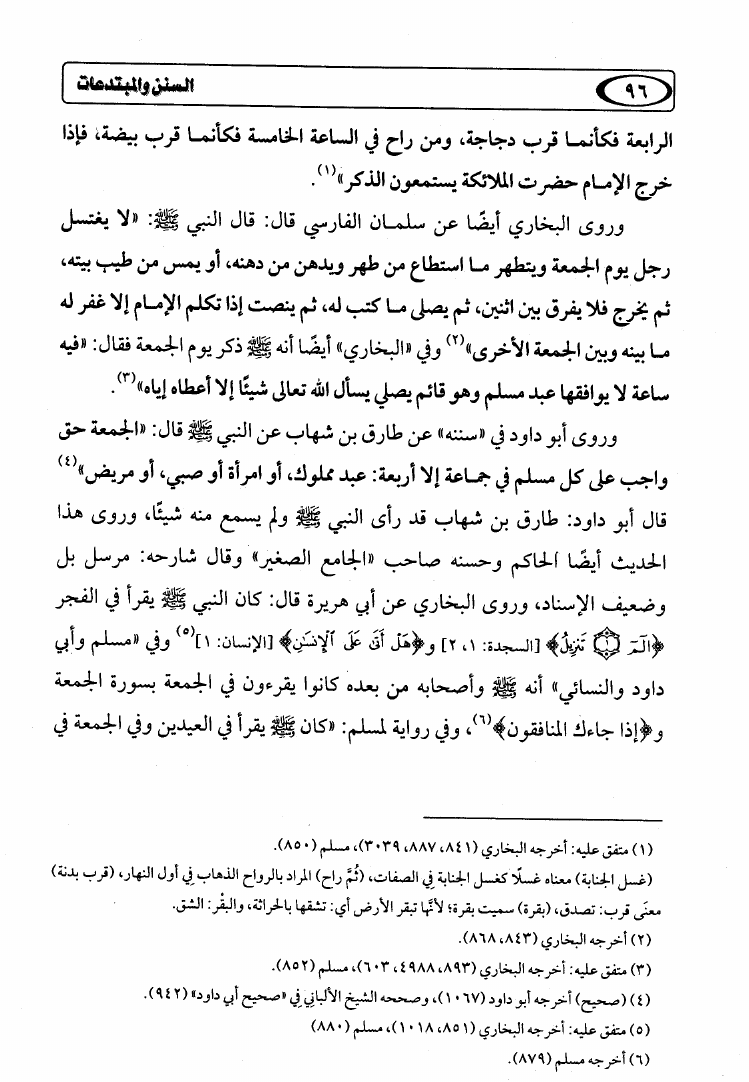 ٩٦
السنن والمبتدعات
الرابعة فكأنما قرب دجاجة، ومن راح في الساعة الخامسة فكأنما قرب بيضة، فإذا
خرج الإمام حضرت الملائكة يستمعون الذكر»(١).
وروى البخاري أيضًا عن سلمان الفارسي قال: قال النبي ﷺ: «لا يغتسل
رجل يوم الجمعة ويتطهر ما استطاع من طهر ويدهن من دهنه، أو يمس من طيب بيته،
ثم يخرج فلا يفرق بين اثنين، ثم يصلي ما كتب له، ثم ينصت إذا تكلم الإمام إلا غفر له
ما بينه وبين الجمعة الأخرى»(٢) وفي «البخاري» أيضًا أنه ﷺ ذكر يوم الجمعة فقال: «فيه
ساعة لا يوافقها عبد مسلم وهو قائم يصلي يسأل الله تعالى شيئًا إلا أعطاه إياه»(٣).
وروى أبو داود في «سننه» عن طارق بن شهاب عن النبي ﷺ قال: «الجمعة حق
واجب على كل مسلم في جماعة إلا أربعة: عبد مملوك، أو امرأة أو صبي، أو مريض»(٤)
قال أبو داود: طارق بن شهاب قد رأى النبي ﷺ ولم يسمع منه شيئًا، وروى هذا
الحديث أيضًا الحاكم وحسنه صاحب «الجامع الصغير» وقال شارحه: مرسل بل
وضعيف الإسناد، وروى البخاري عن أبي هريرة قال: كان النبي ﷺ يقرأ في الفجر
﴿الٓمٓ ۝١ تَنزِيلُ﴾ [السجدة: ١، ٢] و﴿هَلْ أَتَىٰ عَلَى ٱلْإِنسَٰنِ﴾ [الإنسان: ١](٥) وفي «مسلم وأبي
داود والنسائي» أنه ﷺ وأصحابه من بعده كانوا يقرءون في الجمعة بسورة الجمعة
و﴿إذا جاءك المنافقون﴾(٦)، وفي رواية لمسلم: «كان ﷺ يقرأ في العيدين وفي الجمعة في
(١) متفق عليه: أخرجه البخاري (٨٤١، ٨٨٧، ٣٠٣٩)، مسلم (٨٥٠).
(غسل الجنابة) معناه غسلًا كغسل الجنابة في الصفات، (ثُمَّ راح) المراد بالرواح الذهاب في أول النهار، (قرب بدنة)
معنَى قرب: تصدق، (بقرة) سميت بقرة؛ لأنَّها تبقر الأرض أي: تشقها بالحراثة، والبقْر: الشق.
(٢) أخرجه البخاري (٨٤٣، ٨٦٨).
(٣) متفق عليه: أخرجه البخاري (٨٩٣، ٤٩٨٨، ٦٠٣)، مسلم (٨٥٢).
(٤) (صحيح) أخرجه أبو داود (١٠٦٧)، وصححه الشيخ الألباني في «صحيح أبي داود» (٩٤٢).
(٥) متفق عليه: أخرجه البخاري (٨٥١، ١٠١٨)، مسلم (٨٨٠)
(٦) أخرجه مسلم (٨٧٩).